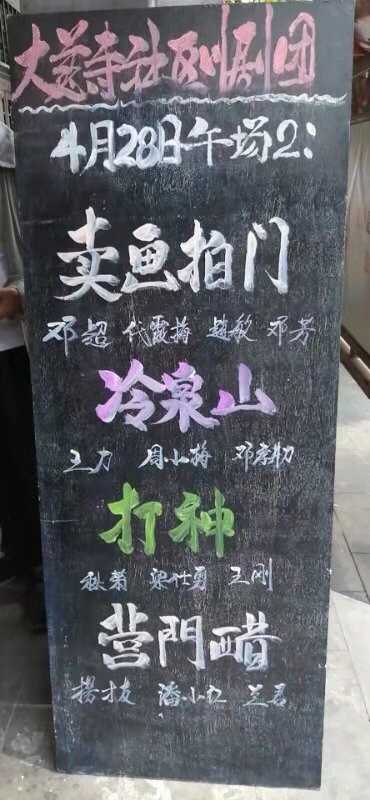 大慈寺社区川剧团
4月28日午场2:
卖画拍门
邓超 代霞梅 赵敏 邓芳
冷泉山
王力 周小梅 邓孝力
打神
秋菊 梁仕勇 王刚
营門醋
杨才友 潘小红 兰君